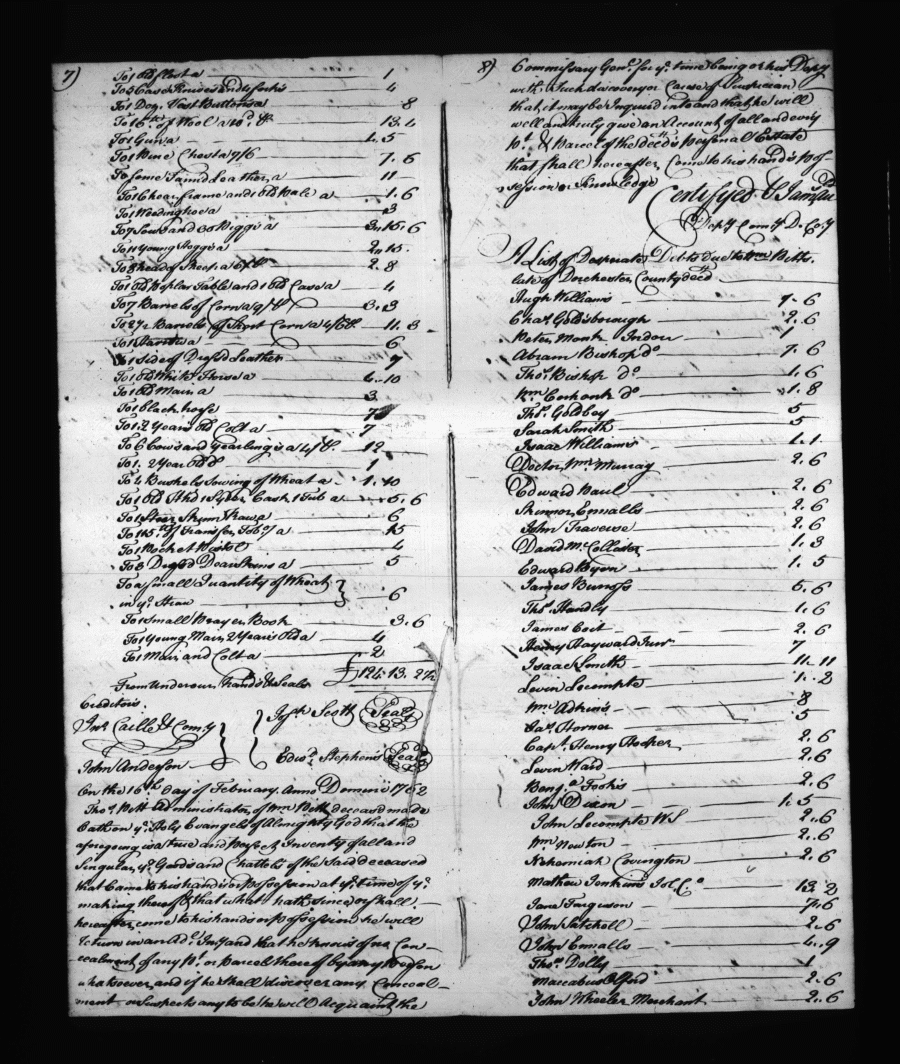 7)
To 1 old float a 1
To 5 Case Knives and forks 4
To 1 Doz. Vest Buttons a 8
To 16 lb of Wool a 10d & 13.4
To 1 Gun a 1.5
To 1 Pine Chest a 7/6 7.6
To some Tann'd Leather a 11
To 1 frame and 1 old a 1.6
To 1 Weeding hoe a 3
To 7 Sows and 30 Piggs a 3..15.6
To 11 Young Hoggs a 2..15.
To 8 head of Sheep a 6/ & 2.8
To 1 old Poplar Table and 1 old Case a 4
To 7 Barrels of Corn a 9/ & 3.3
To 2½ Barrels of Short Corn a 4/6 & 11.3
To 1 a 6
To 1 side of Dress'd Leather 7
To 1 old White Horse a 6..10
To 1 old Mair a 3
To 1 black horse 7
To 1. 2 Years old Colt a 7
To 6 Cows and Yearlings a 4/ & 12
To 1. 2 Year old do 1
To 4 Bushels Sowing of Wheat a 1.10
To 1 old Cask 1 Tub a 6.6
To 1 Steer Skinn Raw a 6
To 115 lb of Transfer Tobo a 15
To 1 Pocket Pistol 4
To 3 Dress'd Dear Skins a 5
To a Small Quantity of Wheat
in ye Straw 6
To 1 Small Prayer Book 3.6
To 1 Young Mair 2 Years Old a 4
To 1 Mair and Colt a 2
£ 124.13.2½
From Under our hands & Seals
Creditors
Jno Caille & Comy Josh Scott Seal
John Anderson Edwd Stephens Seal
On the 16th day of February Anno Domini 1762
Thos Pitt Administrator of Wm Pitt deceased made
Oath on ye Holy Evangels of Almighty God that the
aforegoing is a true and perfect Inventy of all and
Singular ye Goods and Chattels of the Said deceased
that Came to his hands or possession at ye time of ye
making thereof & that what hath since or shall
hereafter come to his hands or possession he will
return in an Addl Invy and that he knows of no Con-
cealment of any Pt or Parcel thereof by any Person
whatsoever, and if he Shall discover any Conceal-
ment or Suspect any to be he will Acquaint the
8)
Commissary Genl for ye time being or his Depy
with Such discovery or Cause of Suspician
that it may be Inquired into and that he will
well and truly give an Account of all and every
Pt & Parcel of the deced's Personal Estate
that Shall hereafter Come to his hands Pos-
session or Knowledge
Certifyed
Depy Comry D. Coy
A List of Desperate Debts due to Wm Pitts
late of Dorchester County deced
Hugh Williams 7.6
Chas Goldsborough 2.6
Peter Monk Indon 1
Abram Bishop do 7.6
Thos Bishop do 1.6
Wm Corhonk do 1.8
Thos Goldboy 5
Sarah Smith 5
Isaac Williams 1.1
Doctor Wm Murray 2.6
Edward Paul 2.6
Skinner Ennalls 2.6
John Traverse 2.6
David McCollister 1.3
Edward Pyon 1.5
James Burnss 6.6
Thos Handly 1.6
James Coit 2.6
Henry Hayward Junr 7
Isaac Smith 11.11
Levin Lecompte 1.2
Wm Adkins 8
Cas Horner 5
Capt Henry Hooper 2.6
Levin Ward 2.6
Benja Foshis 2.6
John Dixon 1.5
John Lecompte WS 2.6
Wm Newton 2.6
Nehemiah Covington 2.6
Mathew Jenkins Sol Co 13.2
Jane Ferguson 7.6
John Satchell 2.6
John Ennalls 4.9
Thos Dolly 1
Maccabus Alford 2.6
John Wheeler Merchant 2.6